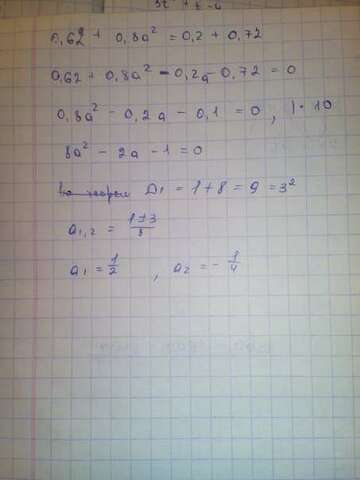 0,62 + 0,8a² = 0,2 + 0,72
0,62 + 0,8a² - 0,2a - 0,72 = 0
0,8a² - 0,2a - 0,1 = 0 , | · 10
8a² - 2a - 1 = 0
D₁ = 1 + 8 = 9 = 3²
a₁,₂ = (1±3)/8
a₁ = 1/2 , a₂ = - 1/4